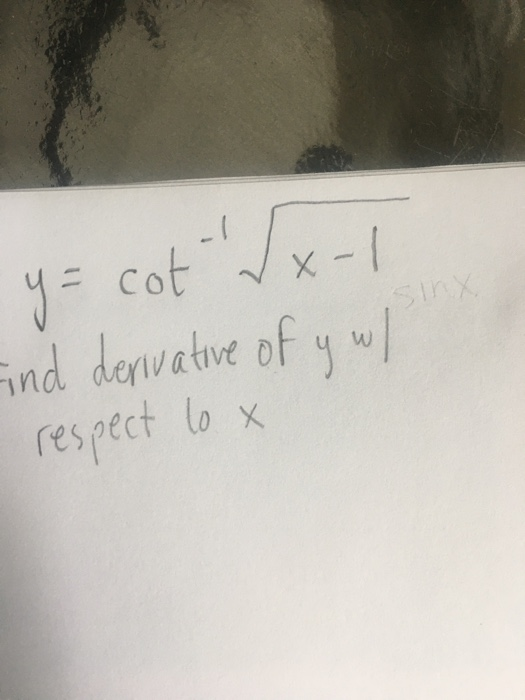 y = cot⁻¹ √x-1
sinx
Find derivative of y w/
respect to x